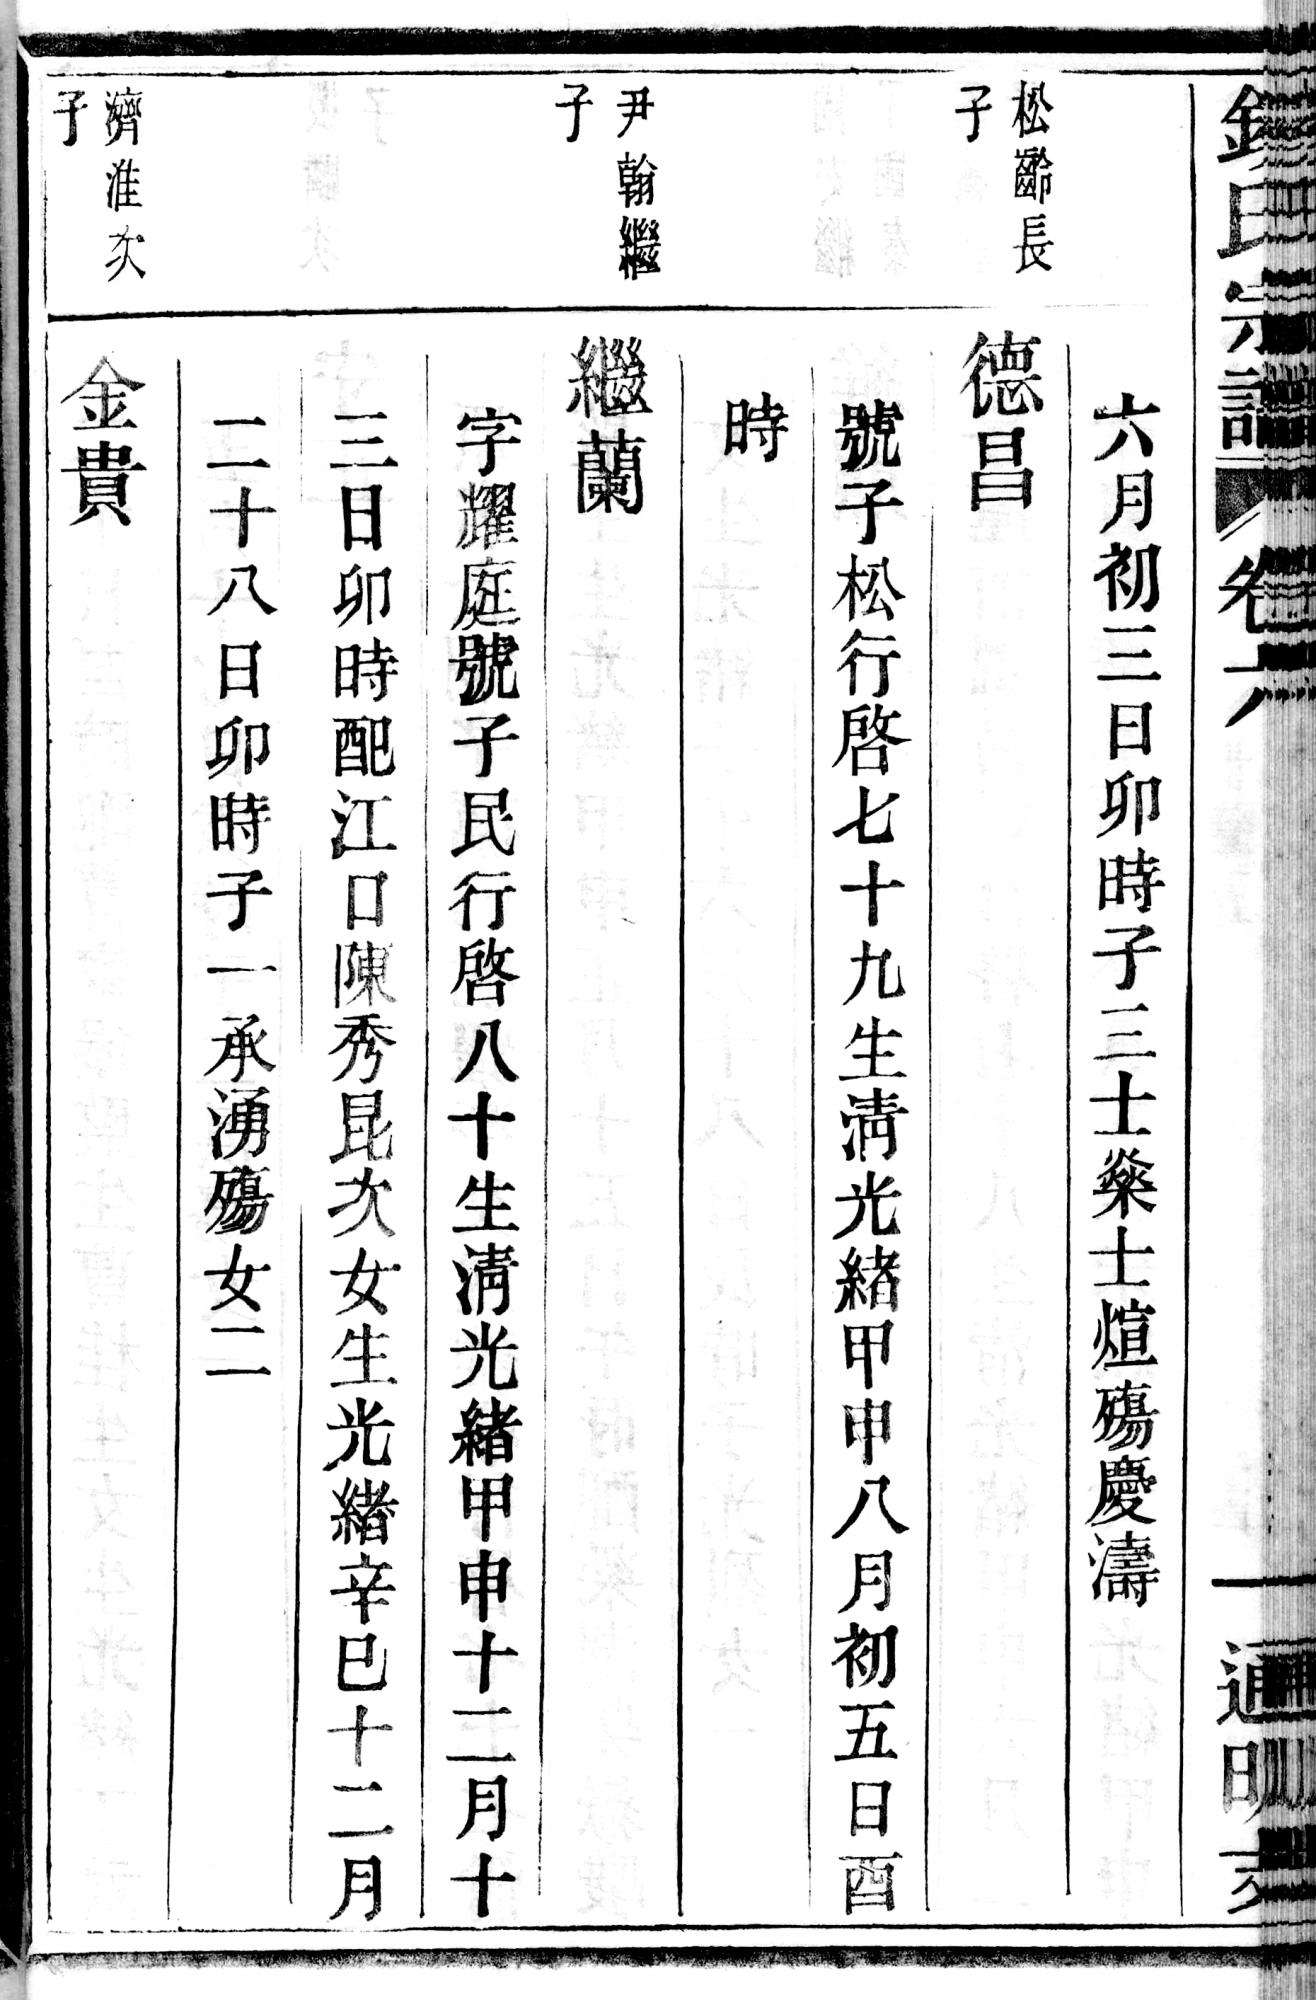 氏宗譜 卷六
六月初三日卯時子三士燊士煊殤慶濤
松齡長子
德昌
號子松行啓七十九生清光緒甲申八月初五日酉
時
尹翰繼子
繼蘭
字耀庭號子民行啓八十生清光緒甲申十二月十
三日卯時配江口陳秀昆次女生光緒辛巳十二月
二十八日卯時子一承湧殤女二
濟淮次子
金貴